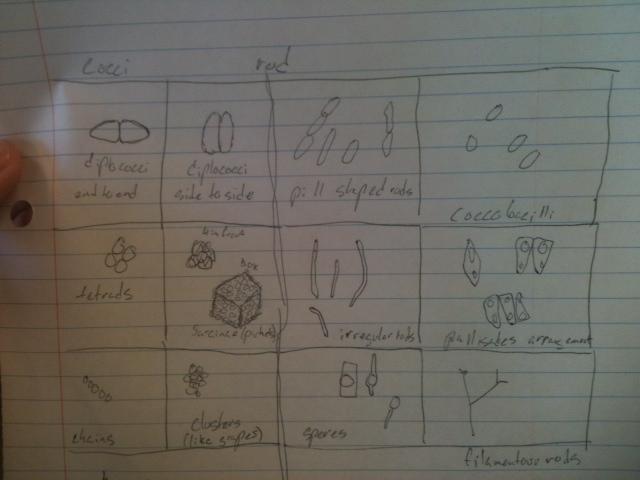 Cocci
rod
diplococci
end to end
diplococci
side to side
pill shaped rods
Coccobacilli
tetrads
box
Sarcinae (packets)
irregular rods
pallisades arrangement
chains
Clusters
(like grapes)
spores
filamentous rods